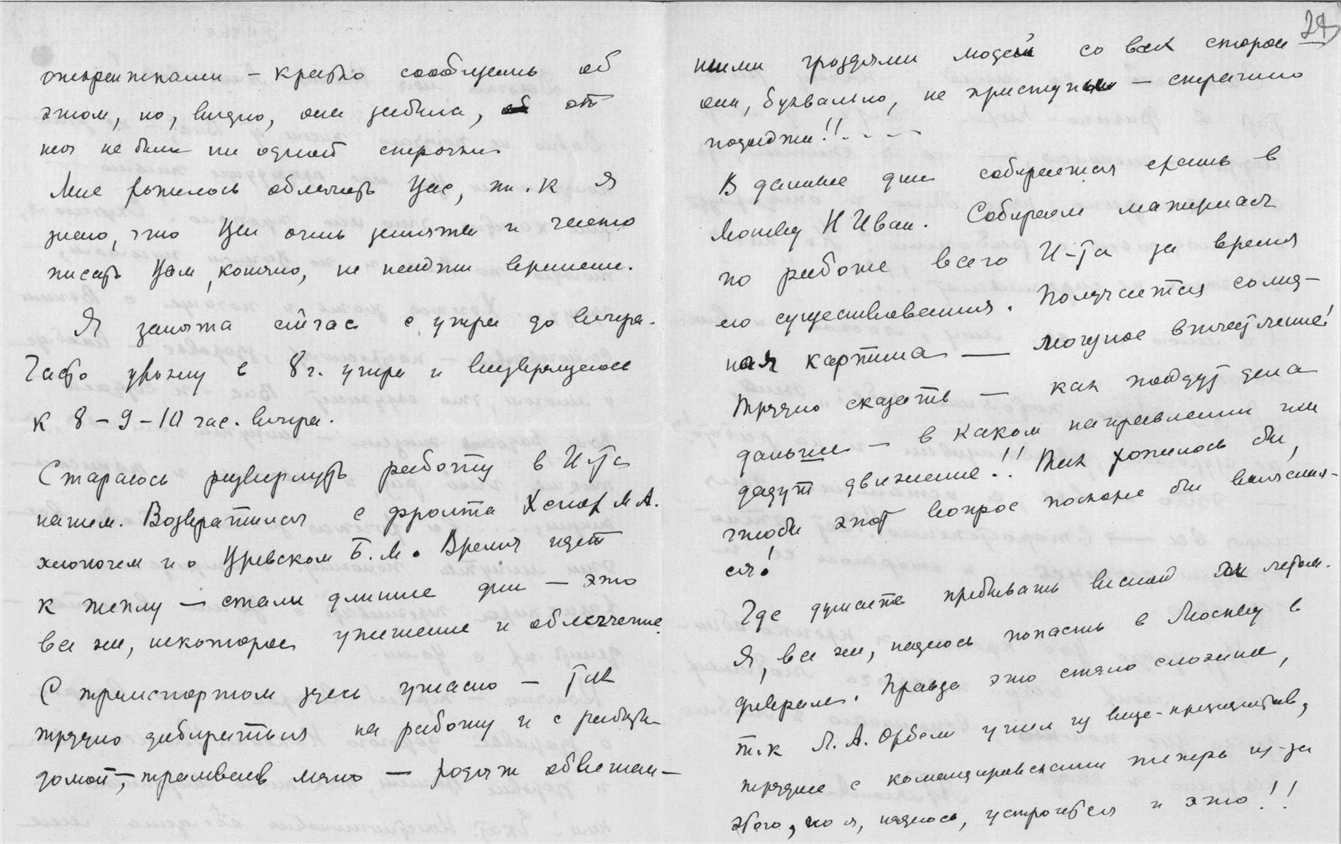 открытками – кратко сообщить об
этом, но, видно, она забыла, от
нея не было ни одной строчки
Мне хотелось облегчить Вас, т. к я
знаю, что Вы очень заняты и часто
писать Вам, конечно, не найдти времени.
Я занята сейчас с утра до вечера.
Часто ухожу в 8 г. утра и возвращаюсь
к 8 – 9 – 10 час. вечера.
Стараюсь развернуть работу в И-те
нашем. Возвратился с фронта М А.
хлопочем и о Уревском Б. М. Время идет
к теплу – стали длиннее дни – это
все же, некоторое утешение и облегчение.
С транспортом здесь ужасно – так
трудно добираться на работу и с работы
домой, – трамваев мало – ходят обвешан–
24
ными гроздями людей со всех сторон
они, буквально, не приступны – страшно
подойдти!! - - - -
В данные дни собирается ехать в
Москву Н Иван. Собираем материал
по работе всего И-та за время
его существования. Получается солид–
ная картина — могучее впечатление!
Трудно сказать – как пойдут дела
дальше – в каком направлении им
дадут движение!! Так хотелось бы,
чтобы этот вопрос поскоре бы выяснил–
ся!
Где думаете пребывать весной и летом.
Я, все же, надеюсь попасть в Москву в
феврале. Правда это стало сложнее,
т.к Л. А. Орбели ушел из вице-президентов,
труднее с командировками теперь из-за
этого, но я, надеюсь, устроится и это!!